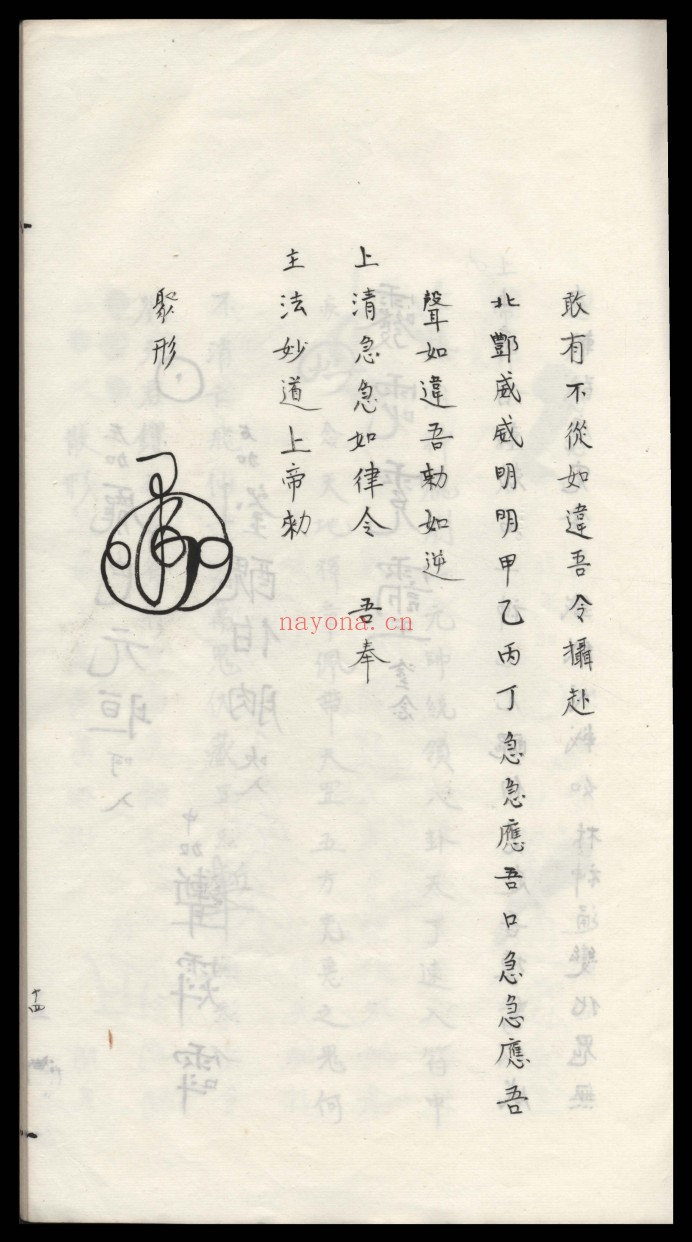 敢有不從如違吾令攝赴
北酆威威明明甲乙丙丁急急應吾口急急應吾
聲如違吾勅如逆
上清急急如律令 吾奉
主法妙道上帝勅
聚形
十四
nayona.cn